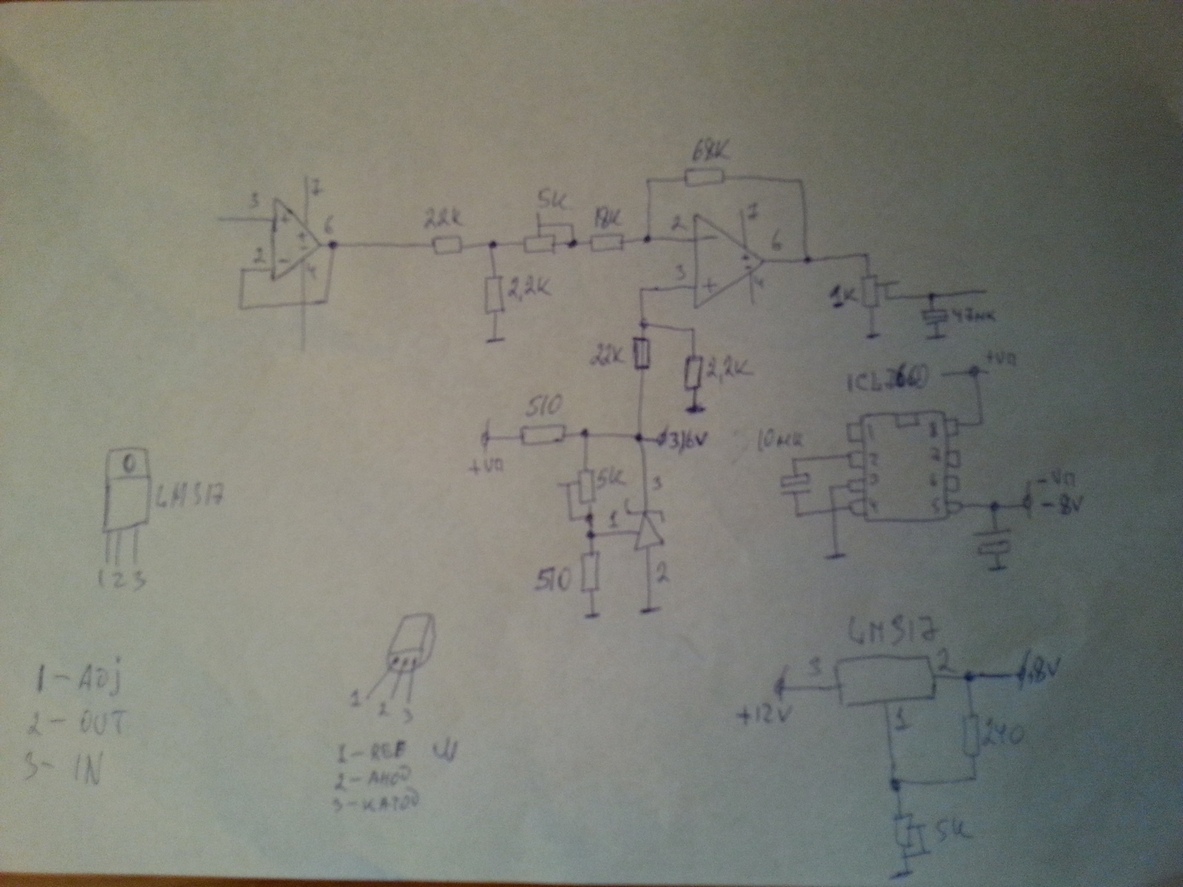 68K
3
7
6
2
4
22K
5K
18K
2
7
6
3
4
2,2K
1K
47мк
22K
2,2K
ICL7660
+Vп
510
3,6V
+Vп
10мк
1
2
3
4
8
7
6
5
-Vп
-8V
5K
3
1
2
510
LM317
1 2 3
1 - ADJ
2 - OUT
3 - IN
1
2
3
1 - REF
2 - АНОД
3 - КАТОД
LM317
3
2
+8V
+12V
1
240
5K